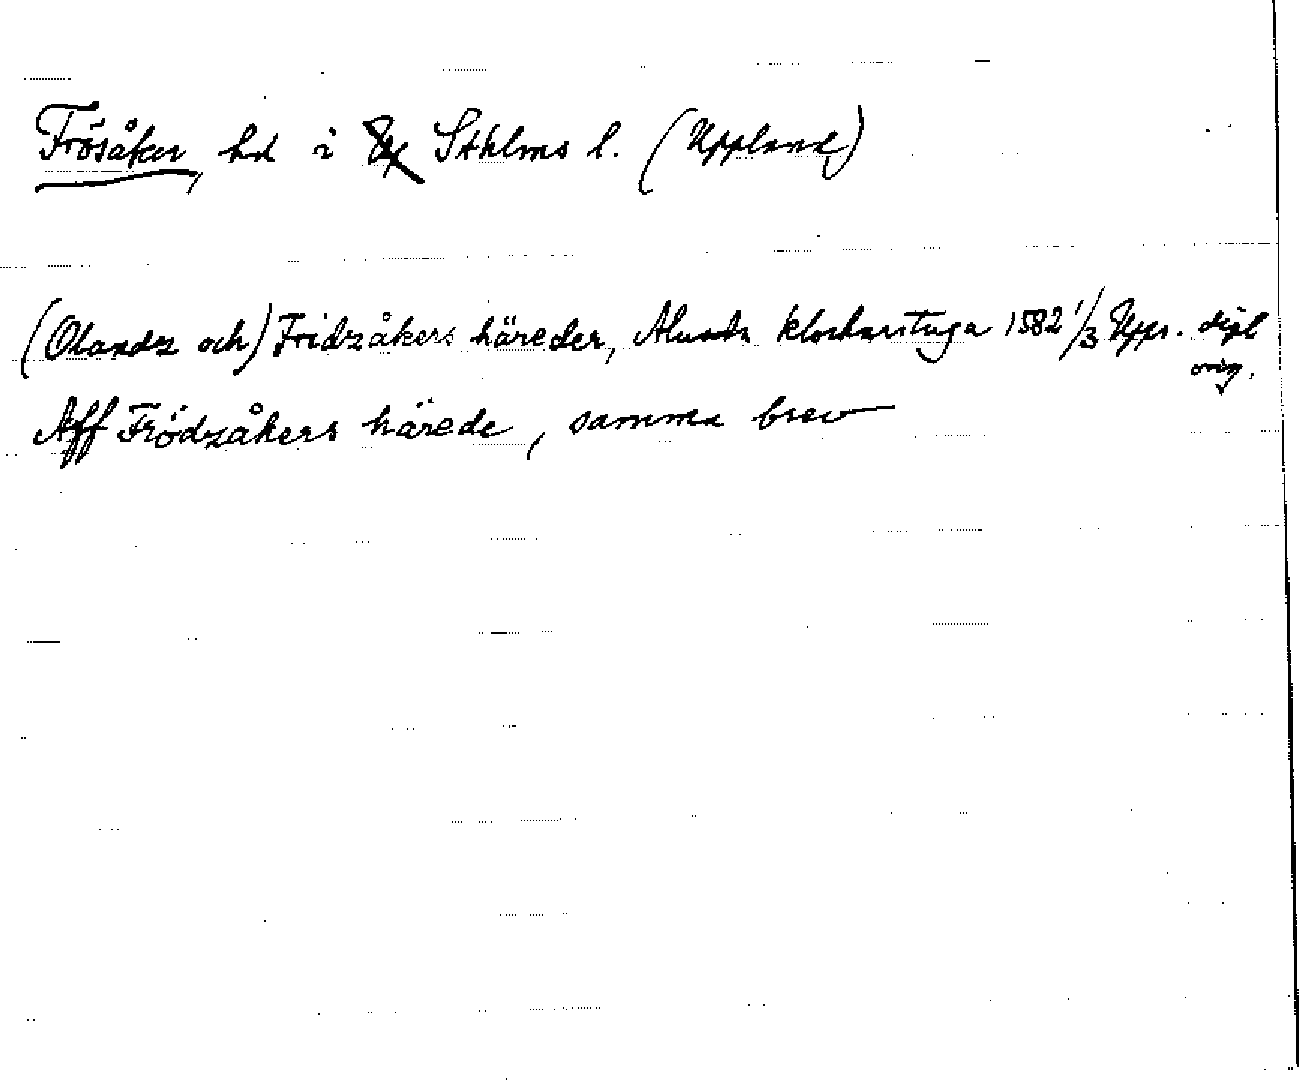 Frösåker, hd i Sthlms l. (Uppland)
(Olandz och) Fridzåkers häreder, Alunda klockarstuga 1582 1/3 Upps. dipl
orig.
Aff Frödzåkers härede, samma brev